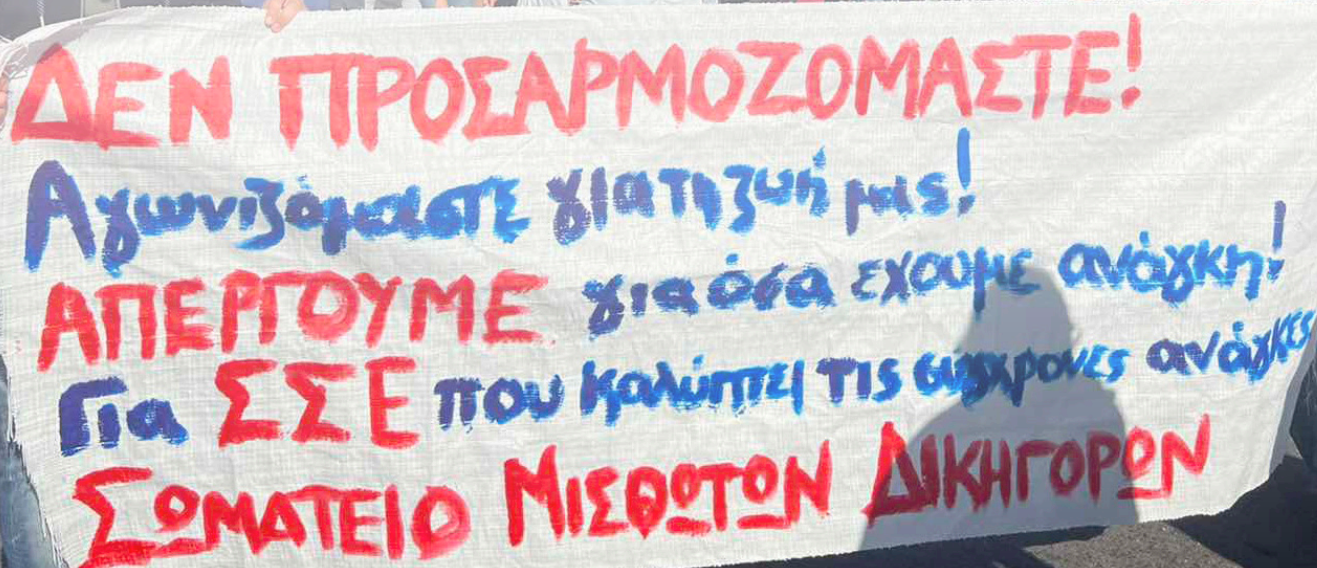 ΔΕΝ ΠΡΟΣΑΡΜΟΖΟΜΑΣΤΕ!
Αγωνιζόμαστε για τη ζωή μας!
ΑΠΕΡΓΟΥΜΕ για όσα έχουμε ανάγκη!
Για ΣΣΕ που καλύπτει τις σύγχρονες ανάγκες
ΣΩΜΑΤΕΙΟ ΜΙΣΘΩΤΩΝ ΔΙΚΗΓΟΡΩΝ